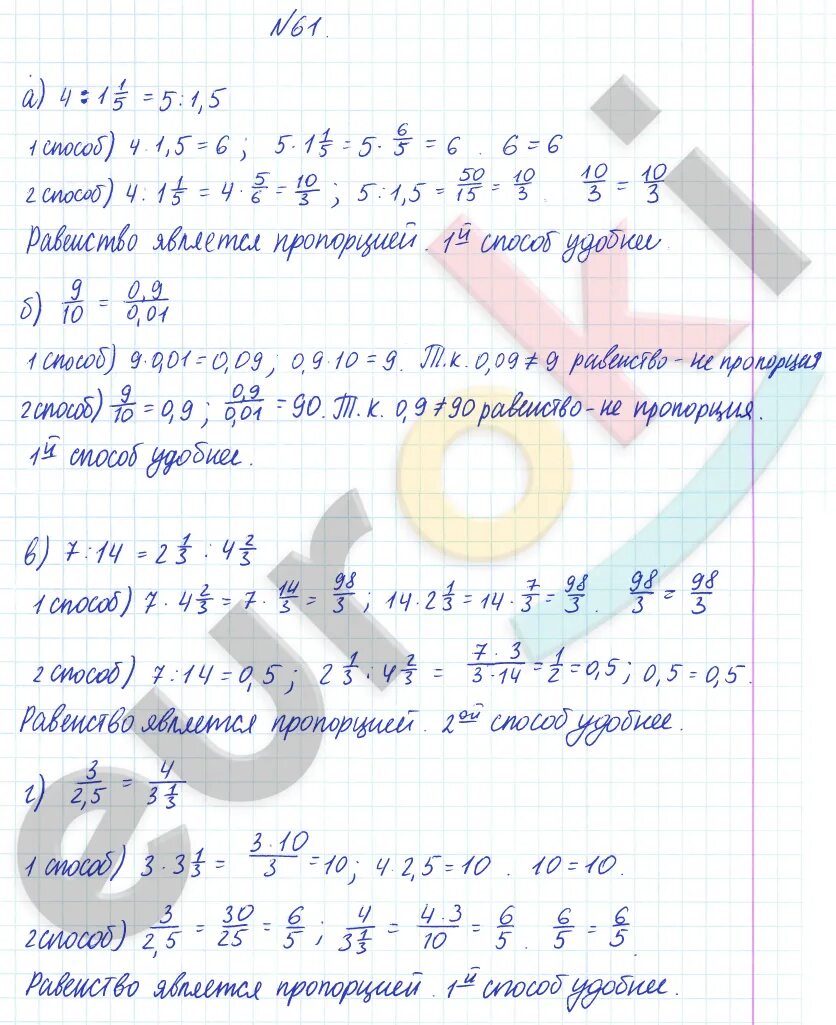 №61.
а) 4 : 1 1/5 = 5 : 1,5
1 способ) 4 · 1,5 = 6 ; 5 · 1 1/5 = 5 · 6/5 = 6 . 6 = 6
2 способ) 4 : 1 1/5 = 4 · 5/6 = 10/3 ; 5 : 1,5 = 50/15 = 10/3 . 10/3 = 10/3
Равенство является пропорцией. 1й способ удобнее.
б) 9/10 = 0,9/0,01
1 способ) 9 · 0,01 = 0,09 ; 0,9 · 10 = 9. Т.к. 0,09 ≠ 9 равенство - не пропорция
2 способ) 9/10 = 0,9 ; 0,9/0,01 = 90. Т.к. 0,9 ≠ 90 равенство - не пропорция.
1й способ удобнее.
в) 7 : 14 = 2 1/3 : 4 2/3
1 способ) 7 · 4 2/3 = 7 · 14/3 = 98/3 ; 14 · 2 1/3 = 14 · 7/3 = 98/3 . 98/3 = 98/3
2 способ) 7 : 14 = 0,5 ; 2 1/3 : 4 2/3 = 7 · 3/3 · 14 = 1/2 = 0,5 ; 0,5 = 0,5.
Равенство является пропорцией. 2ой способ удобнее.
г) 3/2,5 = 4/3 1/3
1 способ) 3 · 3 1/3 = 3 · 10/3 = 10 ; 4 · 2,5 = 10 . 10 = 10.
2 способ) 3/2,5 = 30/25 = 6/5 ; 4/3 1/3 = 4 · 3/10 = 6/5 . 6/5 = 6/5
Равенство является пропорцией. 1й способ удобнее.
euroki